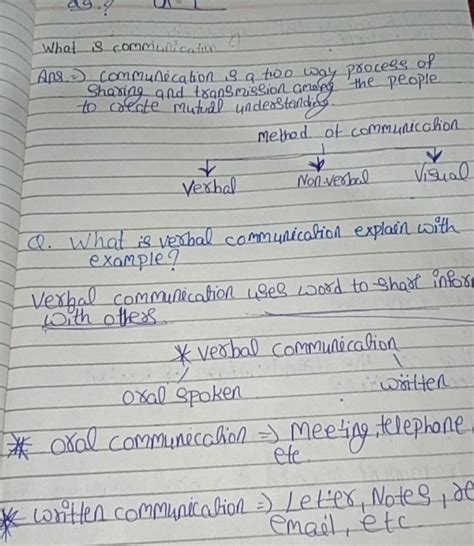 What is communication ?
Ans => communication is a two way process of
sharing and transmission among the people
to create mutual understanding.
method of communication
Verbal Non-verbal Visual
Q. What is verbal communication explain with
example?
Verbal communication uses word to share infor
with others
* verbal communication
oral spoken written
* oral communication => Meeting, telephone
etc.
* written communication => Letter, Notes,
email, etc